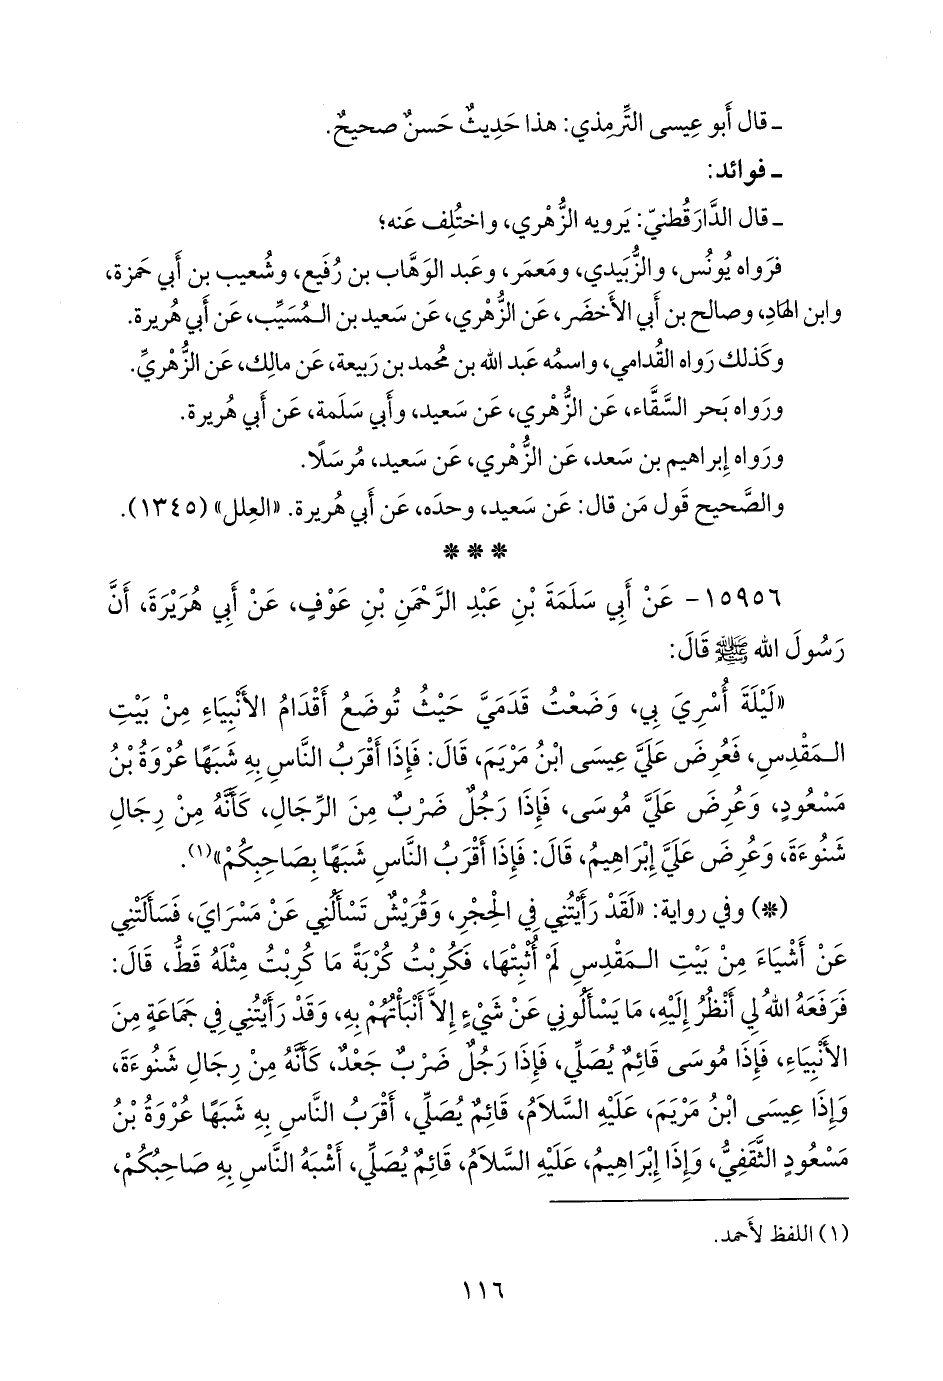 ـ قال أَبو عِيسى التِّرمِذي: هذا حَدِيثٌ حَسنٌ صحيحٌ.
ـ فوائد:
ـ قال الدَّارَقُطنيّ: يَرويه الزُّهْري، واختُلِف عَنه؛
فرَواه يُونُس، والزُّبَيدي، ومَعمَر، وعَبد الوَهَّاب بن رُفَيع، وشُعيب بن أَبي حَمزة،
وابن الهَادِ، وصالح بن أَبي الأَخضَر، عَن الزُّهْري، عَن سَعيد بن الـمُسَيِّب، عَن أَبي هُريرة.
وكَذلك رَواه القُدامي، واسمُه عَبد الله بن مُحمد بن رَبيعة، عَن مالِك، عَن الزُّهْريِّ.
ورَواه بَحر السَّقَّاء، عَن الزُّهْري، عَن سَعيد، وأَبي سَلَمة، عَن أَبي هُريرة.
ورَواه إِبراهيم بن سَعد، عَن الزُّهْري، عَن سَعيد، مُرسَلًا.
والصَّحيح قَول مَن قال: عَن سَعيد، وحدَه، عَن أَبي هُريرة. «العِلل» (١٣٤٥).
* * *
١٥٩٥٦- عَنْ أَبِي سَلَمَةَ بْنِ عَبْدِ الرَّحْمَنِ بْنِ عَوْفٍ، عَنْ أَبِي هُرَيْرَةَ، أَنَّ
رَسُولَ الله ﷺ قَالَ:
«لَيْلَةَ أُسْرِيَ بِي، وَضَعْتُ قَدَمَيَّ حَيْثُ تُوضَعُ أَقْدَامُ الأَنْبِيَاءِ مِنْ بَيْتِ
الـمَقْدِسِ، فَعُرِضَ عَلَيَّ عِيسَى ابْنُ مَرْيَمَ، قَالَ: فَإِذَا أَقْرَبُ النَّاسِ بِهِ شَبَهًا عُرْوَةُ بْنُ
مَسْعُودٍ، وَعُرِضَ عَلَيَّ مُوسَى، فَإِذَا رَجُلٌ ضَرْبٌ مِنَ الرِّجَالِ، كَأَنَّهُ مِنْ رِجَالِ
شَنُوءَةَ، وَعُرِضَ عَلَيَّ إِبْرَاهِيمُ، قَالَ: فَإِذَا أَقْرَبُ النَّاسِ شَبَهًا بِصَاحِبِكُمْ»(١).
(*) وفي رواية: «لَقَدْ رَأَيْتُنِي فِي الْحِجْرِ، وَقُرَيْشٌ تَسْأَلُنِي عَنْ مَسْرَايَ، فَسَأَلَتْنِي
عَنْ أَشْيَاءَ مِنْ بَيْتِ الـمَقْدِسِ لَمْ أُثْبِتْهَا، فَكُرِبْتُ كُرْبَةً مَا كُرِبْتُ مِثْلَهُ قَطُّ، قَالَ:
فَرَفَعَهُ اللهُ لِي أَنْظُرُ إِلَيْهِ، مَا يَسْأَلُونِي عَنْ شَيْءٍ إِلاَّ أَنْبَأْتُهُمْ بِهِ، وَقَدْ رَأَيْتُنِي فِي جَمَاعَةٍ مِنَ
الأَنْبِيَاءِ، فَإِذَا مُوسَى قَائِمٌ يُصَلِّي، فَإِذَا رَجُلٌ ضَرْبٌ جَعْدٌ، كَأَنَّهُ مِنْ رِجَالِ شَنُوءَةَ،
وَإِذَا عِيسَى ابْنُ مَرْيَمَ، عَلَيْهِ السَّلاَمُ، قَائِمٌ يُصَلِّي، أَقْرَبُ النَّاسِ بِهِ شَبَهًا عُرْوَةُ بْنُ
مَسْعُودٍ الثَّقَفِيُّ، وَإِذَا إِبْرَاهِيمُ، عَلَيْهِ السَّلاَمُ، قَائِمٌ يُصَلِّي، أَشْبَهُ النَّاسِ بِهِ صَاحِبُكُمْ،
(١) اللفظ لأَحمد.
١١٦